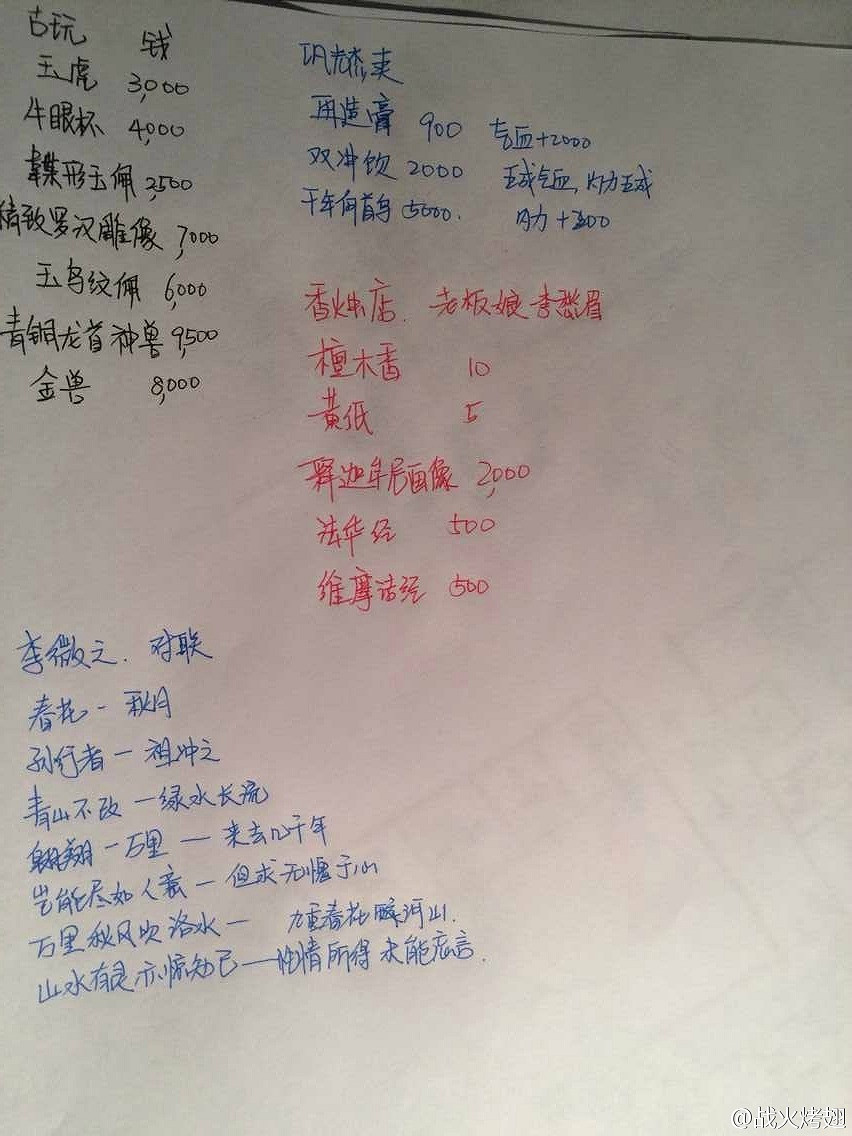 古玩 钱
玉虎 3,000
牛眼杯 4,000
形玉佩 2,500
精致罗汉雕像 7,000
玉鸟纹佩 6,000
青铜龙首神兽 9,500
金兽 8,000
再造膏 900 气血+2000
双冲饮 2000 五成气血,内力五成
千年何首乌 5000. 内力+300
香烛店. 老板娘李愁眉
檀木香 10
黄纸 5
释迦牟尼画像 2,000
法华经 500
维摩诘经 500
李微之. 对联
春花-秋月
孙行者-祖冲之
青山不改-绿水长流
翱翔-万里-来去几千年
岂能尽如人意-但求无愧于心
万里秋风吹洛水- 九重春花醉河山.
山水有灵亦惊知己-性情所得未能忘言.
@战火烤翅